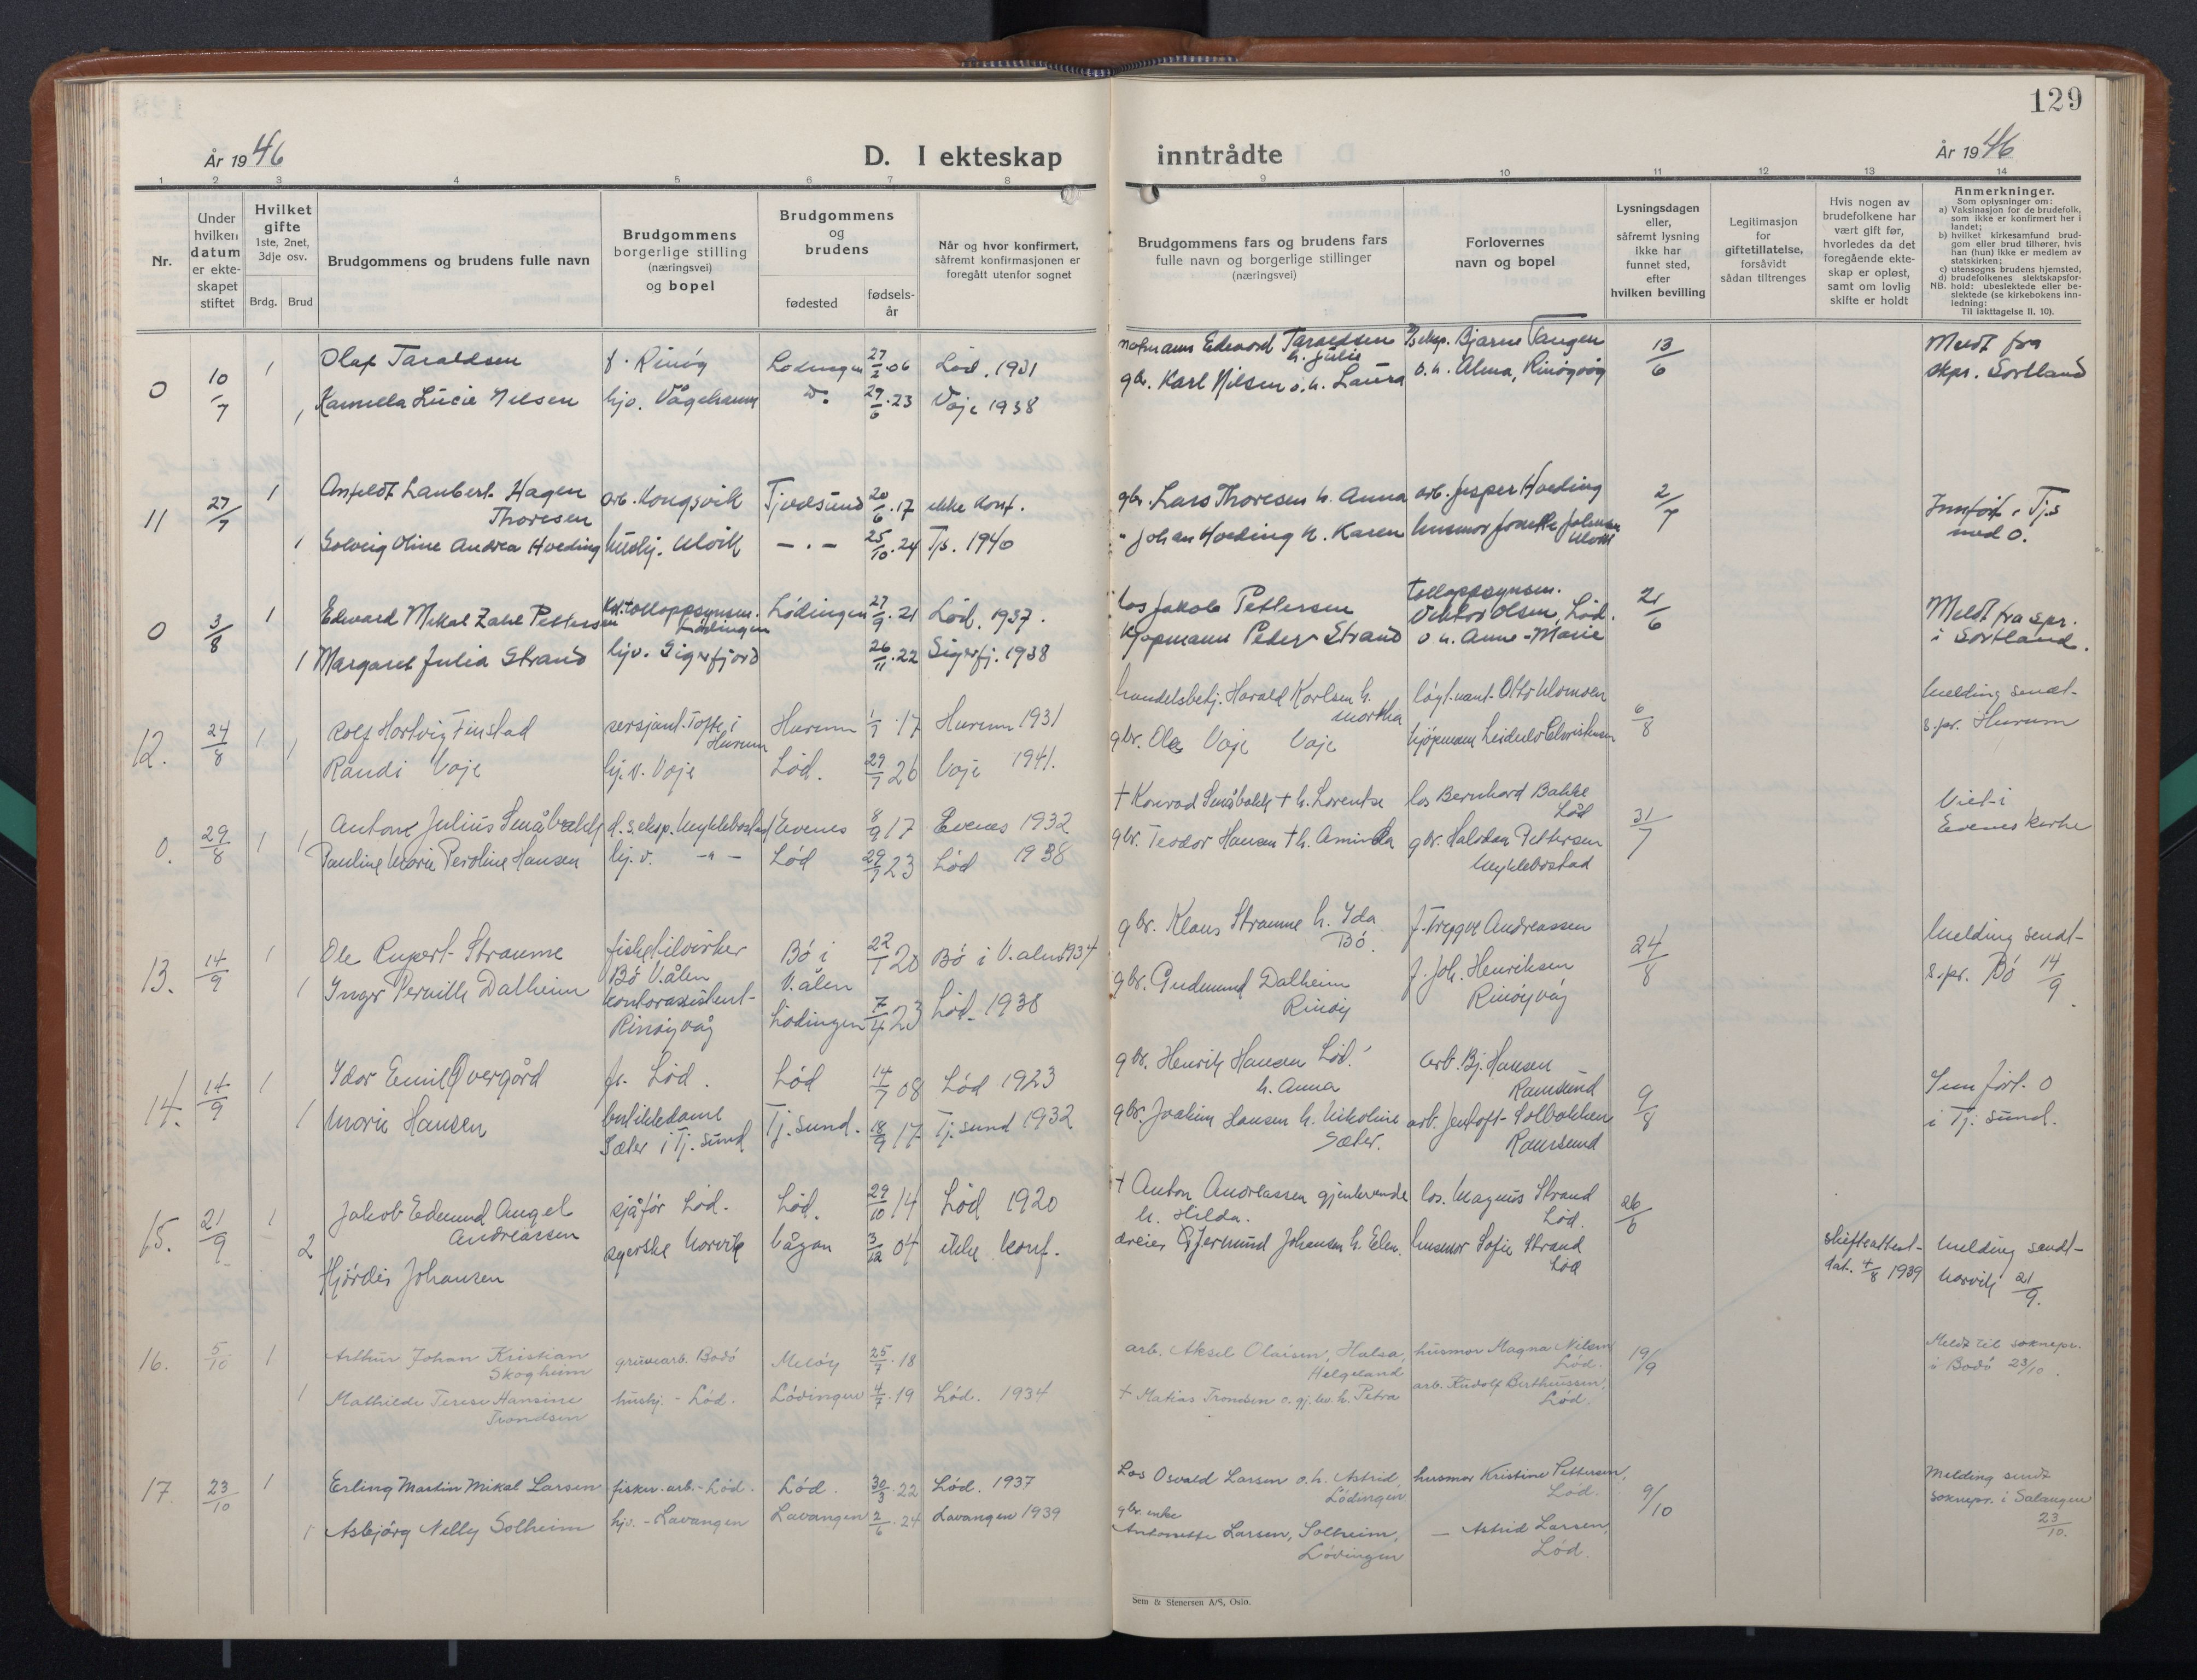 129
År 1946
D. I ekteskap inntrådte
År 1946
1 2 3 4 5 6 7 8 9 10 11 12 13 14
Nr.
Under
hvilken
datum
er ekte-
skapet
stiftet
Hvilket
gifte
1ste, 2net,
3dje osv.
Brdg. Brud
Brudgommens og brudens fulle navn
Brudgommens
borgerlige stilling
(næringsvei)
og bopel
Brudgommens
og
brudens
fødested
fødsels-
år
Når og hvor konfirmert,
såfremt konfirmasjonen er
foregått utenfor sognet
Brudgommens fars og brudens fars
fulle navn og borgerlige stillinger
(næringsvei)
Forlovernes
navn og bopel
Lysningsdagen
eller,
såfremt lysning
ikke har
funnet sted,
efter
hvilken bevilling
Legitimasjon
for
giftetillatelse,
forsåvidt
sådan tiltrenges
Hvis nogen av
brudefolkene har
vært gift før,
hvorledes da det
foregående ekte-
skap er opløst,
samt om lovlig
skifte er holdt
Anmerkninger.
Som oplysninger om:
a) Vaksinasjon for de brudefolk,
som ikke er konfirmert her i
landet;
b) hvilket kirkesamfund brud-
gom eller brud tilhører, hvis
han (hun) ikke er medlem av
statskirken;
c) utensogns brudens hjemsted,
d) brudefolkenes slektskapsfor-
NB. hold: ubeslektede eller be-
slektede (se kirkebokens inn-
ledning:
Til iakttagelse II, 10).
0 10/7 1 Olaf Taraldsen f. Rinöy Lödingen 27/2.06 Löd. 1921
Edvard Taraldsen h. Julie Bjarne Tangen 13/6 Meldt fra
1 Lucie Nilsen hjv. Vågehamn do 29/6.23 Voje 1938
gbr. Karl Nilsen o. h. Laura o. h. Alma, Rinöyvåg skpr. Sortland
11 27/7 1 Lambert Hagen
Thoresen arb. Kongsvik Tjeldsund 20/6.17 ikke konf.
gbr. Lars Thoresen h. Anna arb. Jesper Hveding 2/7 Innfört i Tjs
1 Solveig Oline Andrea Hveding hushj. Ulvik - . - 25/10.24 Tjs. 1940
" Johan Hveding h. Karen husmor Johnsen Ulvik med 0.
0 3/8 1 Edvard Mikal Zahl Pettersen tolloppsynsm.
Lödingen Lödingen 27/9.21 Löd. 1937.
los Jakob Pettersen tolloppsynsm.
Viktor Olsen, Löd. 21/6 Meldt fra spr.
1 Margaret Julia Strand hjv. Sigerfjord 26/11.22 Sigerfj. 1938
Kjöpmann Peder Strand o h. Anne-Marie i Sortland.
12. 24/8 1 Rolf Hartvig Finstad sersjant. Tofte i
Hurum Hurum 1/7 17 Hurum 1931
handelsbetj. Harald Karlsen h.
Martha löyt.nant. Otto 6/8 Melding sendt
s.pr. Hurum
1 Randi Voje hj.v. Voje Löd. 29/7 26 Voje 1941.
gbr. Ole Voje Voje kjöpmann Christensen
0. 29/8 1 Anton Julius Småbakk d.s.eksp. Myklebostad Evenes 8/9 17 Evenes 1932
† Konrad Småbakk † h. Lorentse los Bernhard Bakke
Löd 31/7 Viet i
Evenes kirke
1 Pauline Marie Peroline Hansen hj.v. -"- Löd 29/7 23 Löd 1938
gbr. Teodor Hansen † h. Aminda gbr. Halvdan Pettersen
Myklebostad
13. 14/9 1 Ole Rupert Straume fisketilvirker
Bö V.ålen Bö i
V.ålen 22/7 20 Bö i V.ålen 1934
gbr. Klaus Straume h. Ida
Bö. f. Trygve Andreassen 24/8 Melding sendt
s.pr. Bö 14/9.
1 Inger Pernille Dalheim kontorassistent
Rinöyvåg Lödingen 7/4 23 Löd. 1938
gbr. Gudmund Dalheim
Rinöy f. Joh. Henriksen
Rinöyvåg
14. 14/9 1 Idar Emil Övergård fr. Löd. Löd 14/7 08 Löd 1923
gbr. Henrik Hansen Löd.
h. Anna arb. Bj. Hansen
Ramsund 9/8 Innfört 0
i Tj. sund.
1 Marie Hansen butikkdame
Sæter i Tj. sund Tj. sund. 18/9 17 Tj. sund 1932
gbr. Joakim Hansen h. Nikoline
Sæter. arb. Jentoft Solbakken
Ramsund
15. 21/9 1 Jakob Edmund Angel
Andreassen sjåför Löd. Löd. 29/10 14 Löd 1920
† Anton Andreassen gjenlevende
h. Hilda. los. Magnus Strand
Löd. 26/6
2 Hjördis Johansen syerske Narvik Vågan 3/12 04 ikke konf.
dreier Gjermund Johansen h. Elen. husmor Sofie Strand
Löd skifteattest
dat. 4/8 1939 Melding sendt
Narvik 21/9.
16. 5/10 1 Arthur Johan Kristian
Skogheim gruvearb. Bodö Melöy 25/7.18
arb. Aksel Olaisen, Halsa,
Helgeland husmor Magna Nilsen
Löd. 19/9 Meldt til soknepr.
i Bodö 23/10.
1 Mathilde Terese Hansine
Trondsen hushj. - Löd. Lödingen 4/7.19 Löd. 1934
† Matias Trondsen o. gj. lev. h. Petra arb. Rudolf Berthiussen,
Löd.
17. 23/10 1 Erling Martin Mikal Larsen fisker. arb. - Löd. Löd. 30/3.22 Löd. 1937
Los Osvald Larsen o. h. Astrid
Lödingen husmor Kristine Pettersen,
Löd. 9/10 Melding sendt
soknepr. i Salangen
23/10.
1 Asbjörg Nelly Solheim hjv. - Lavangen Lavangen 2/6.24 Lavangen 1939
gbr. enke
Antonette Larsen, Solheim,
Lödingen - Astrid Larsen,
Löd.
Sem & Stenersen A/S, Oslo.